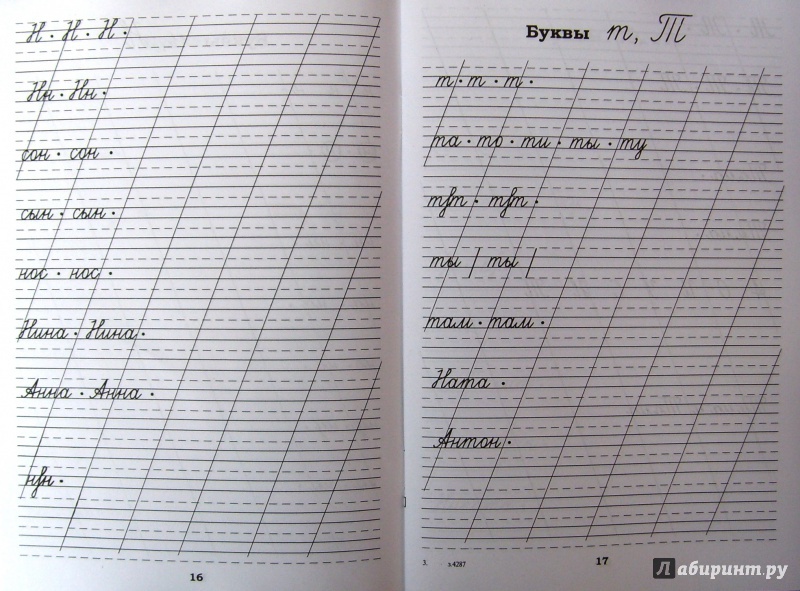 Н · Н · Н ·
Нн · Нн ·
сон · сон ·
сын · сын ·
нос · нос ·
Нина · Нина ·
Анна · Анна ·
нвн ·
16
Буквы т, Т
т · т · т ·
та · то · ти · ты · ту
твт · твт ·
ты | ты |
там · там ·
Ната ·
Антон ·
3. з.4287
17
Лабиринт.ру